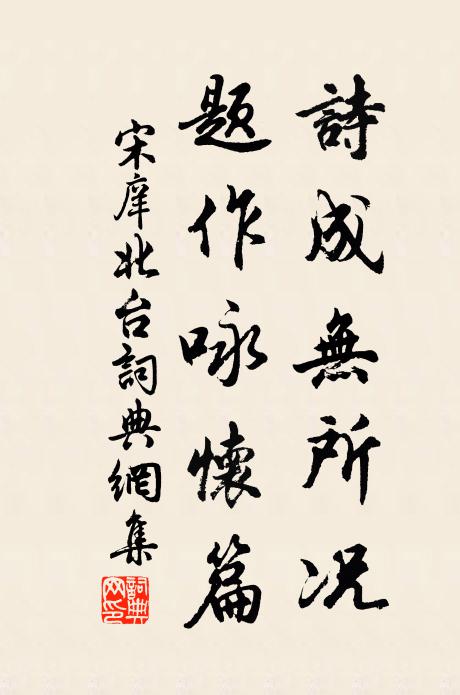 詩成無所况
題作咏懷篇
宋庠北台詞典網集
詞典網印